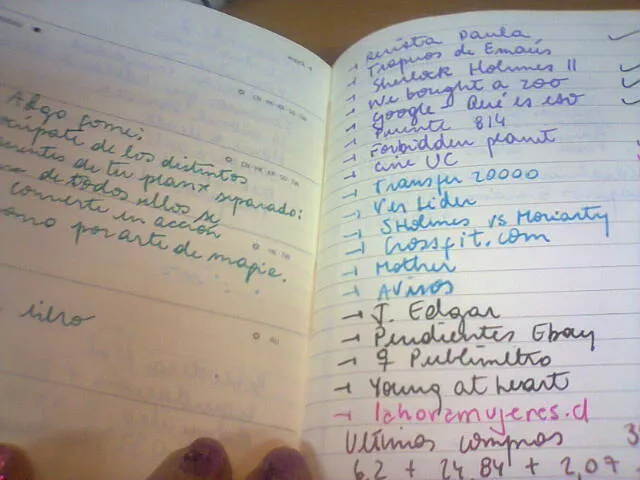 Algo pome:
ocúpate de los distintos
de tu plan x separado:
de todos ellos se
convierte en acción
como por arte de magia.
libro
→ Revista Paula
→ Trapuos de Emaús
→ Sherlock Holmes II
→ We bought a zoo
→ Google → Qué es eso
→ Puente 814
→ Forbidden planet
→ Cine UC
→ Transfer 20000
→ Ver Lider
→ SHolmes vs Moriarty
→ Crossfit.com
→ Mother
→ Avisos
→ J. Edgar
→ Pendientes Ebay
→ Publimetro
→ Young at heart
→ lahoramujeres.cl
Ultimas compras
6,2 + 24,84 + 2,07